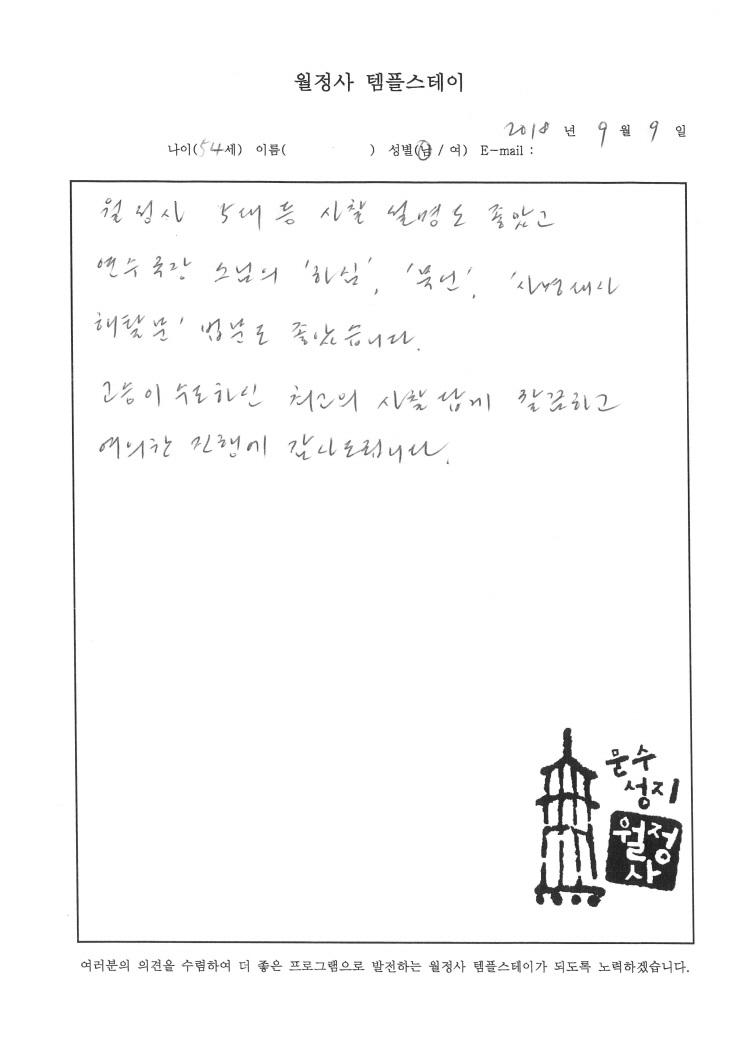 월정사 템플스테이
2018 년 9 월 9 일
나이(54세) 이름( ) 성별(남 / 여) E-mail :
월정사 5대 등 사찰 설명도 좋았고
연수국장 스님의 '하심', '묵언', '사명대사
해탈문' 법문도 좋았습니다.
고승이 수도하인 최고의 사찰답게 깔끔하고
여의한 진행에 감사드립니다.
문수
성지
월정
사
여러분의 의견을 수렴하여 더 좋은 프로그램으로 발전하는 월정사 템플스테이가 되도록 노력하겠습니다.